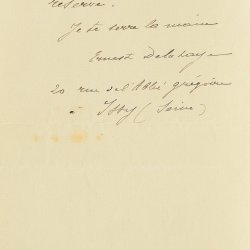 réserve.
Je te serre la main
Ernest Delahaye
20 rue de l'Abbé grégoire
à Issy (Seine)